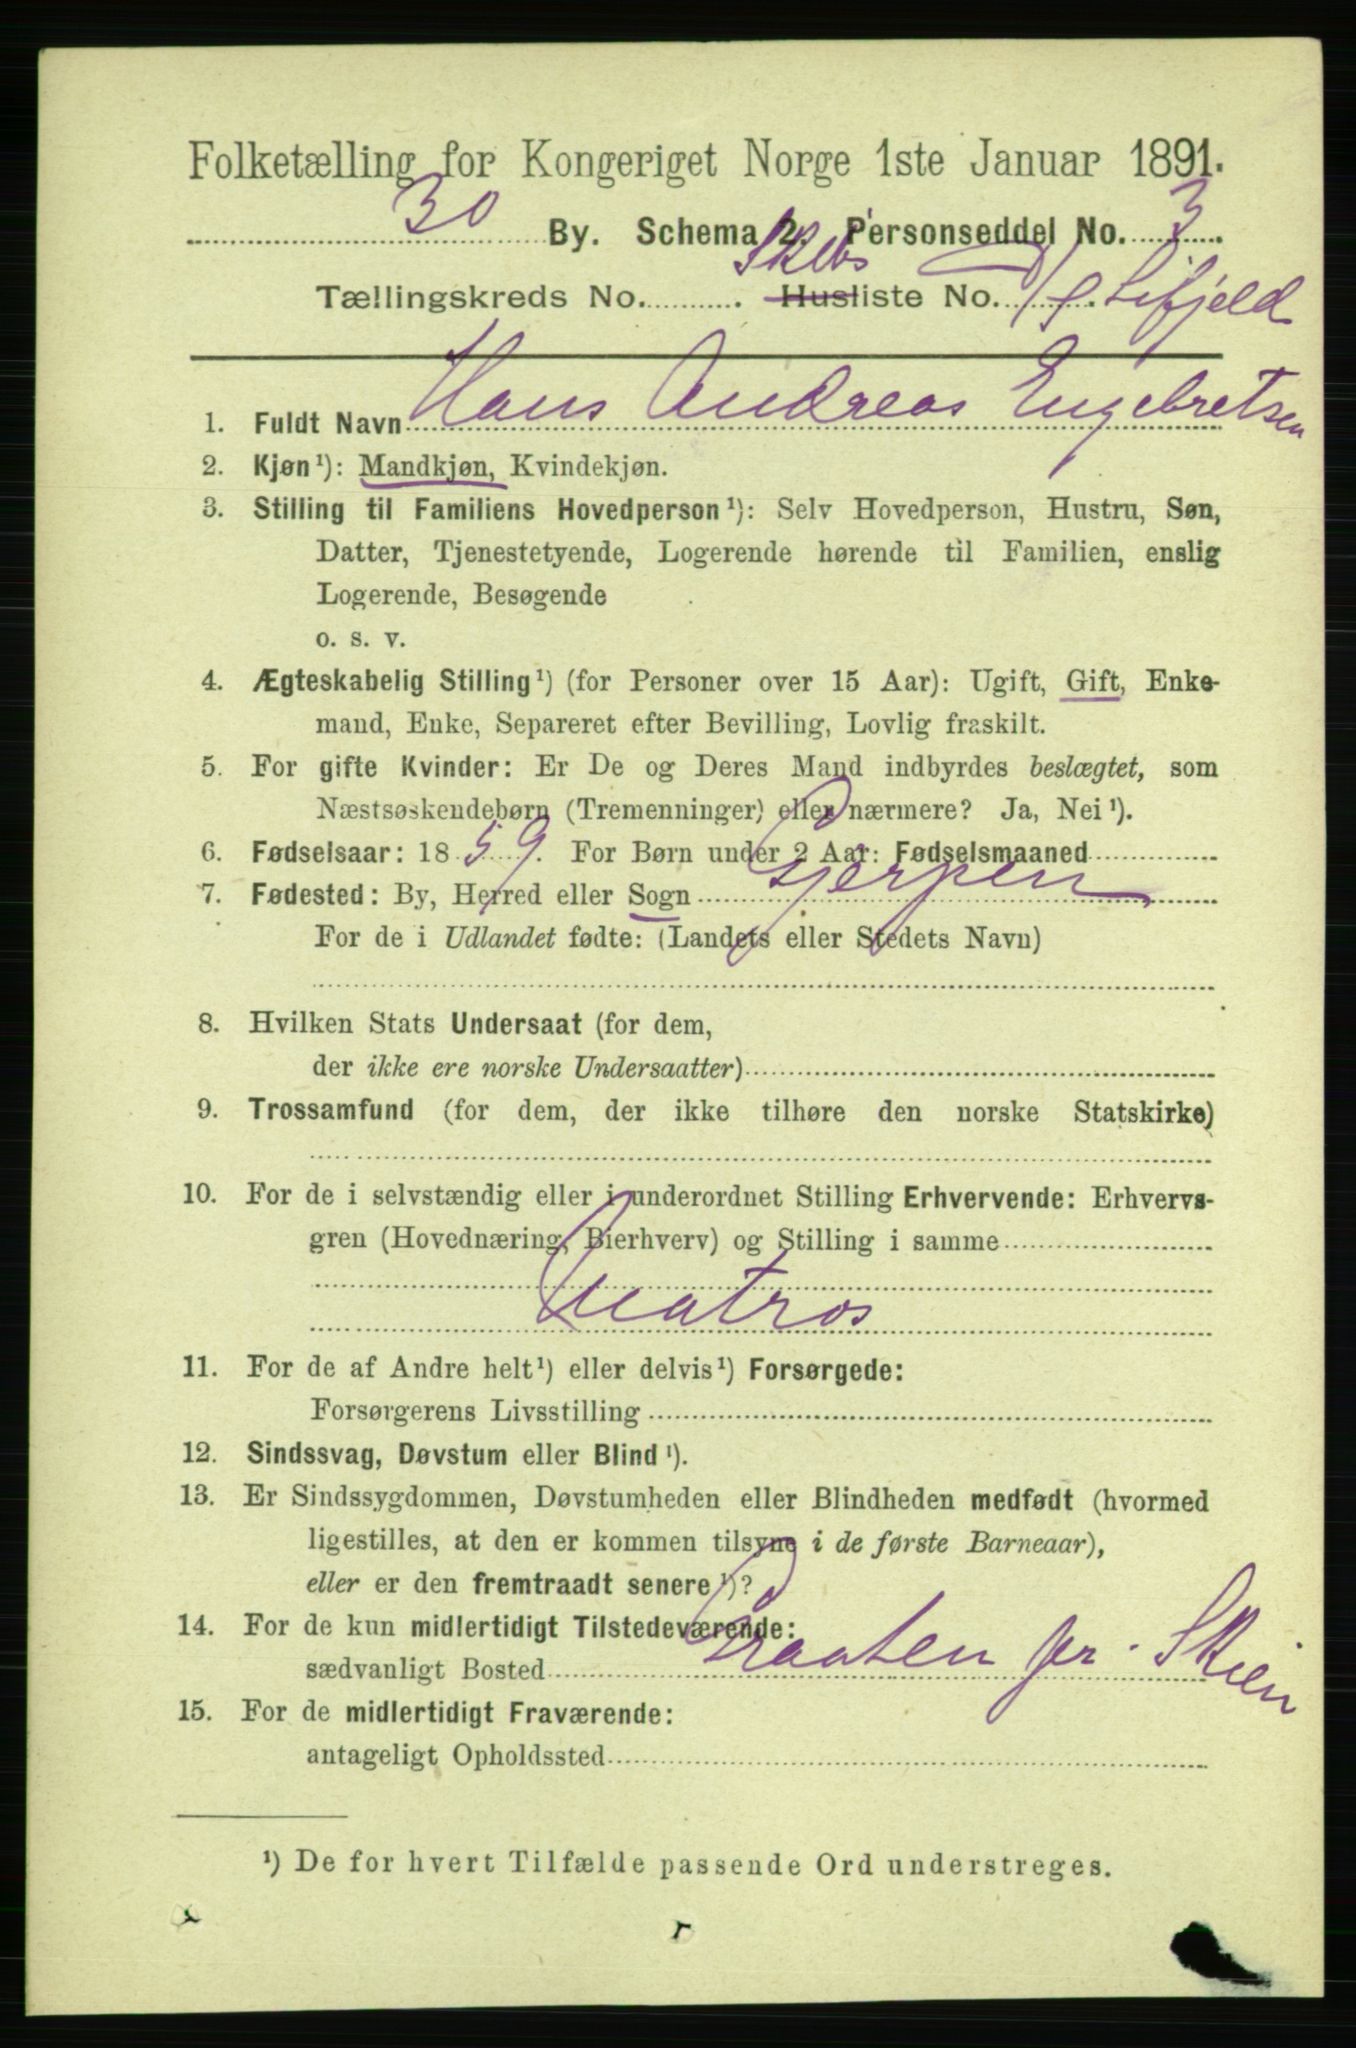 Folketælling for Kongeriget Norge 1ste Januar 1891.
30 By. Schema 2. Personseddel No. 3
Tællingskreds No. . Skibsliste No. Lifjeld
1. Fuldt Navn Hans Andreas Engebretsen
2. Kjøn¹): Mandkjøn, Kvindekjøn.
3. Stilling til Familiens Hovedperson¹): Selv Hovedperson, Hustru, Søn,
Datter, Tjenestetyende, Logerende hørende til Familien, enslig
Logerende, Besøgende
o. s. v.
4. Ægteskabelig Stilling¹) (for Personer over 15 Aar): Ugift, Gift, Enke-
mand, Enke, Separeret efter Bevilling, Lovlig fraskilt.
5. For gifte Kvinder: Er De og Deres Mand indbyrdes beslægtet, som
Næstsøskendebørn (Tremenninger) eller nærmere? Ja, Nei¹).
6. Fødselsaar: 1859. For Børn under 2 Aar: Fødselsmaaned
7. Fødested: By, Herred eller Sogn Gjerpen
For de i Udlandet fødte: (Landets eller Stedets Navn)
8. Hvilken Stats Undersaat (for dem,
der ikke ere norske Undersaatter)
9. Trossamfund (for dem, der ikke tilhøre den norske Statskirke)
10. For de i selvstændig eller i underordnet Stilling Erhvervende: Erhvervs-
gren (Hovednæring, Bierhverv) og Stilling i samme
Matros
11. For de af Andre helt¹) eller delvis¹) Forsørgede:
Forsørgerens Livsstilling
12. Sindssvag, Døvstum eller Blind¹).
13. Er Sindssygdommen, Døvstumheden eller Blindheden medfødt (hvormed
ligestilles, at den er kommen tilsyne i de første Barneaar),
eller er den fremtraadt senere¹)?
14. For de kun midlertidigt Tilstedeværende:
sædvanligt Bosted Graaten pr. Skien
15. For de midlertidigt Fraværende:
antageligt Opholdssted
¹) De for hvert Tilfælde passende Ord understreges.